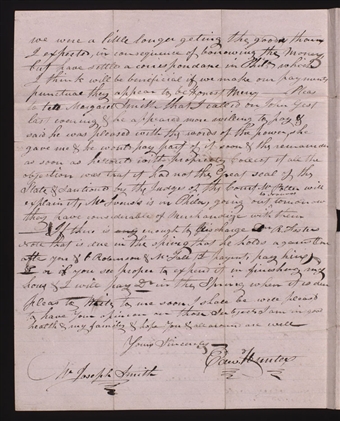 we were a little longer geting the goods than
I expected, in consequence of borrowing the Money
but have settle a correspondance in Phila which
I think will be beneficial if we make our payments
punctual they appear to be honest Men — Pleas
to tell Margaret Smith that I called on last
evening & he apeares more willing to pay &
said he was pleased with the words of the power she
gave me & he would pay part of it soon & the remainder
as soon as he could with propriety collect it all the
objection was that it had not the Great seal of the
State & Santioned by the Judge of the Court Mr will
explain it, Mr is in Phila going out tomorrow
they have considerable of Merchandize with them
If there is enough to discharge R Foster
Note that is due in the Spring that he holds against me
after you & P Robinson & Mr payents pay him
or if you see proper to expend it in finishing my
house & I will pay in the Spring when it is due
pleas to to me soon I shall be well pleased
to have your opinion on those Subjects I am in good
health & my family & hope you & are well
Yours Sincerely
Edwd Hunter
Mr Joseph Smith